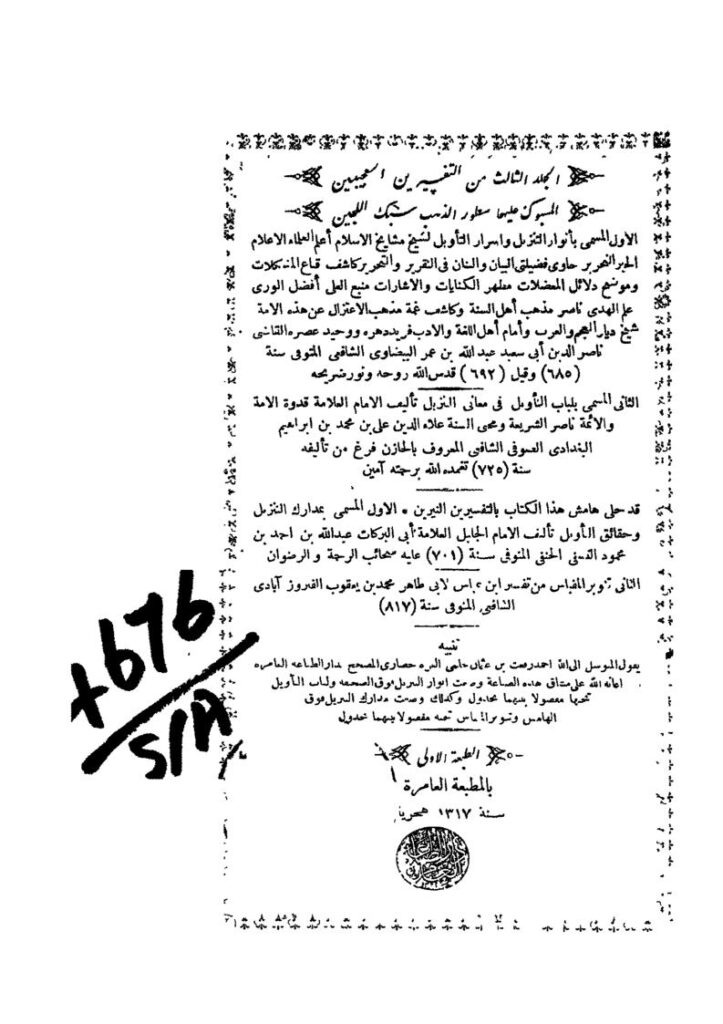 المجلد الثالث من التفسيرين العجيبين
المسبوك عليها سطور الذهب شبك اللجين
الاول المسمى بأنوار التنزيل واسرار التأويل لشيخ مشايخ الاسلام أعلم العلماء الاعلام
الحبر النحرير حاوى فضيلتى البيان والبنان فى التقرير والتحرير كاشف قناع المشكلات
وموضح دلائل المعضلات مظهر الكنايات والاشارات منبع العلى أفضل الورى
علم الهدى ناصر مذهب أهل السنة وكاشف غمة مذهب الاعتزال عن هذه الامة
شيخ ديار العجم والعرب وأمام أهل اللغة والادب فريد دهره ووحيد عصره القاضى
ناصر الدين أبى سعيد عبد الله بن عمر البيضاوى الشافعى المتوفى سنة
(٦٨٥) وقيل (٦٩٢) قدس الله روحه ونور ضريحه
الثانى المسمى بلباب التأويل فى معانى التنزيل تأليف الامام العلامة قدوة الامة
والائمة ناصر الشريعة ومحى السنة علاء الدين على بن محمد بن ابراهيم
البغدادى الصوفى الشافعى المعروف بالخازن فرغ من تأليفه
سنة (٧٢٥) تغمده الله برحمته آمين
قد حلى هامش هذا الكتاب بالتفسيرين النيرين * الاول المسمى بمدارك التنزيل
وحقائق التأويل تأليف الامام الجليل العلامة أبى البركات عبدالله بن احمد بن
محمود النسفى الحنفى المتوفى سنة (٧٠١) عليه سحائب الرحمة والرضوان
الثانى تنوير المقباس من تفسير ابن عباس لابى طاهر محمد بن يعقوب الفيروز آبادى
الشافعى المتوفى سنة (٨١٧)
تنبيه
يقول المتوسل الى الله احمد رفعت بن عثمان حلمى القره حصارى المصحح بدار الطباعه العامره
اعانه الله على مشاق هذه الصناعة وضعت انوار التنزيل فوق الصحيفه ولباب التأويل
تحتها مفصولا بينهما بجدول وكذلك وضعت مدارك التنزيل فوق
الهامش وتنوير المقباس تحته مفصولا بينهما بجدول
الطبعة الاولى
بالمطبعة العامرة
سنة ١٣١٧ هجريه
+676
S/A